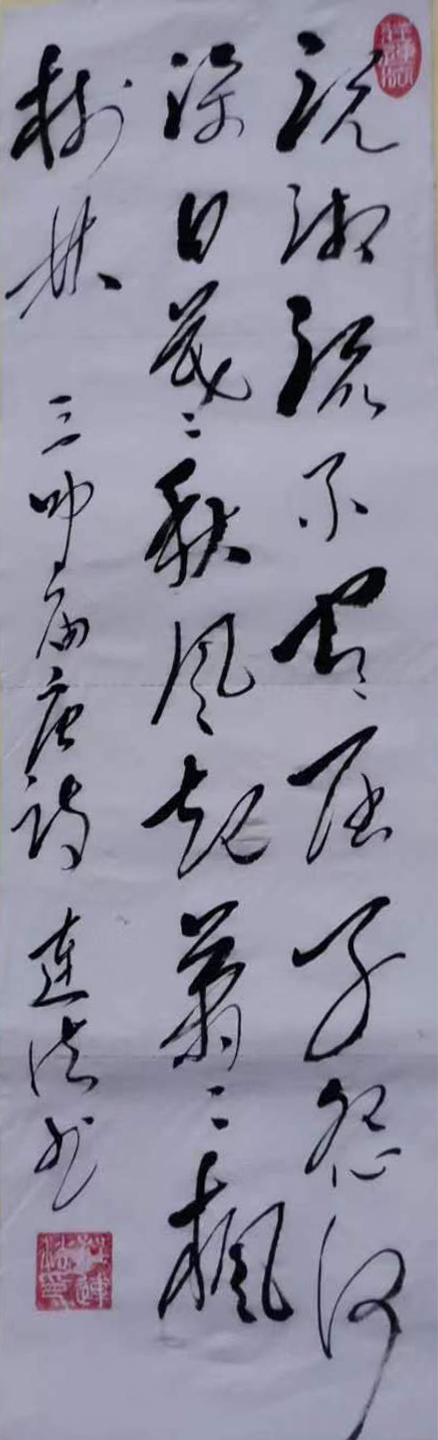 沅湘流不尽屈子怨何
深日暮秋风起萧々枫
树林 三闾庙唐诗 连法书